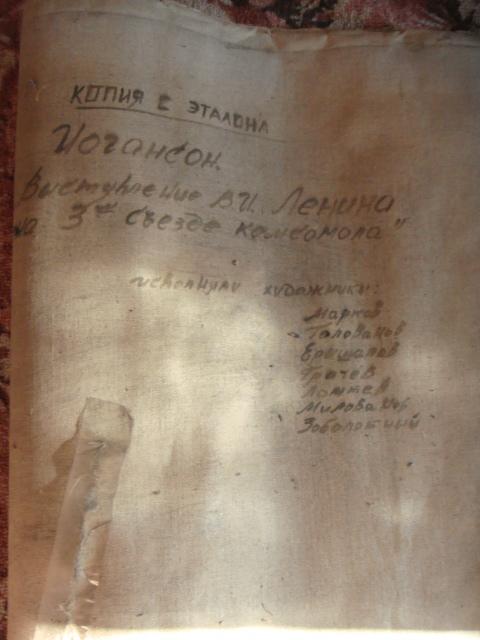 КОПИЯ С ЭТАЛОНА
Иогансон.
Выступление В.И. Ленина
на 3ем съезде комсомола"
исполнили художники:
Марков
Голованов
Ершалов
Грачев
Лаптев
Милованов
Заболотний